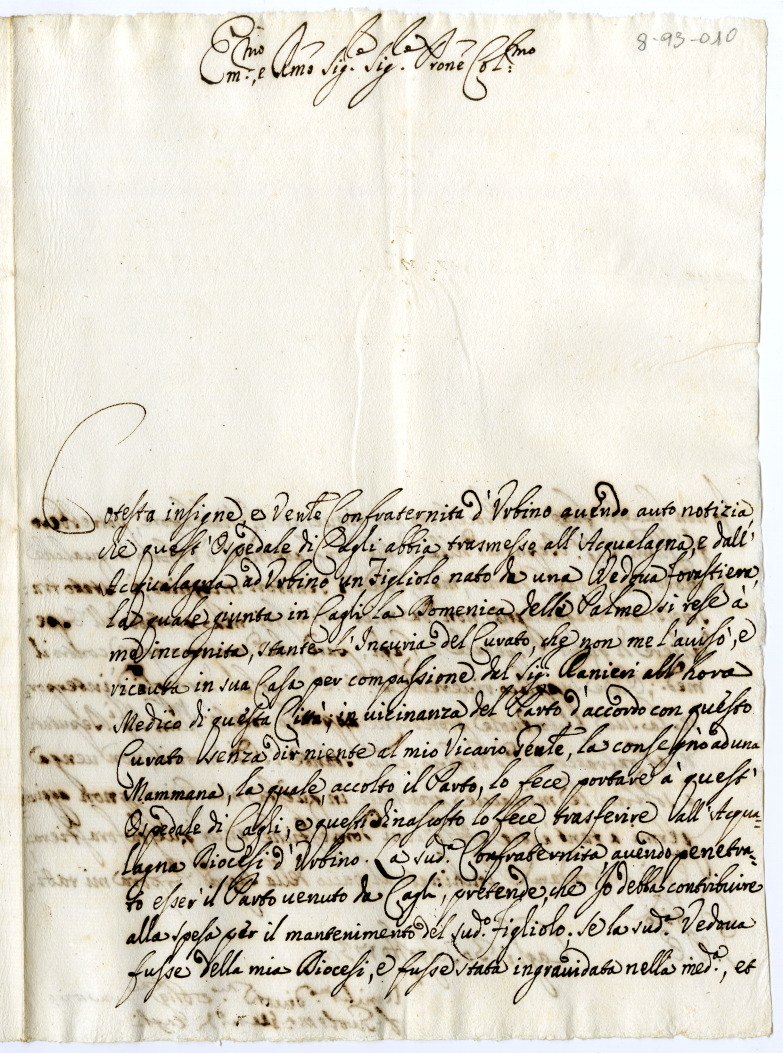 8-93-010
Em.mo e Rmo Sig.re Sig.re Prone Col.mo
Cotesta insigne, e Ven.le Confraternita d'Urbino avendo auto notizia
che quest'Ospedale di Cagli abbia trasmesso all'Acqualagna, e dall'
Acqualagna ad Urbino un figliolo nato da una Vedova forastiera,
la quale giunta in Cagli la Domenica delle Palme si rese à
me incognita, stante l'Incuria del Curato, che non me l'avisò, e
ricevuta in sua Casa per compassione dal Sig. Ranieri all'hora
Medico di questa Città, in vicinanza del Parto d'accordo con questo
Curato senza dir niente al mio Vicario Gen.le, la consegnò ad una
Mammana, la quale accolto il Parto, lo fece portare à quest'
Ospedale di Cagli, e questi di nascosto lo fece trasferire all'Acqua-
lagna Diocesi d'Urbino. La sud.a Confraternita avendo penetra-
to esser il Parto venuto da Cagli, pretende, che Io debba contribuire
alla spesa per il mantenimento del sud.o figliolo. Se la sud.a Vedova
fusse della mia Diocesi, e fusse stata ingravidata nella med.a, et